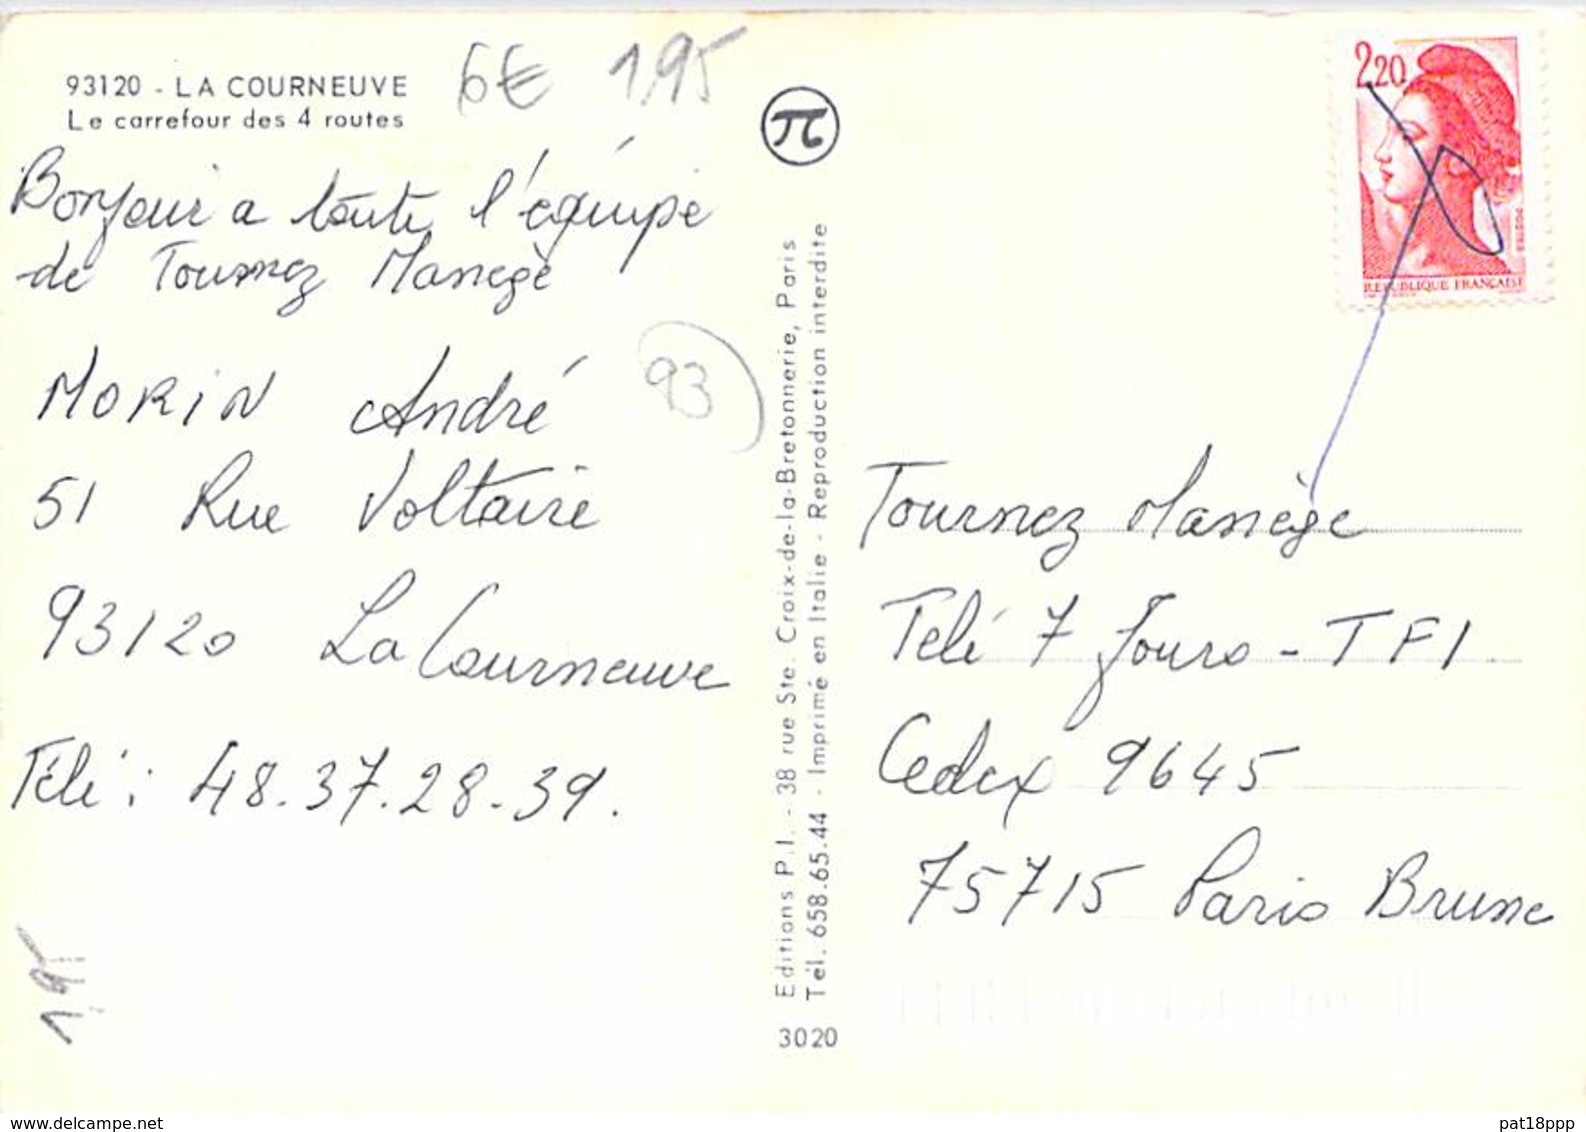 93120 - LA COURNEUVE
Le carrefour des 4 routes
6€ 1,95
Bonjour a toute l'équipe
de Tournez Manège
MORiN André
51 Rue Voltaire
93120 La Courneuve
Télé : 48.37.28.39.
93
1,95
π
Editions P.I. - 38 rue Ste. Croix-de-la-Bretonnerie, Paris
Tél. 658.65.44 - Imprimé en Italie - Reproduction interdite
3020
2,20
REPUBLIQUE FRANÇAISE
Tournez Manège
Télé 7 Jours - TF1
Cedex 9645
75715 Paris Brune
www.delcampe.net
pat18ppp